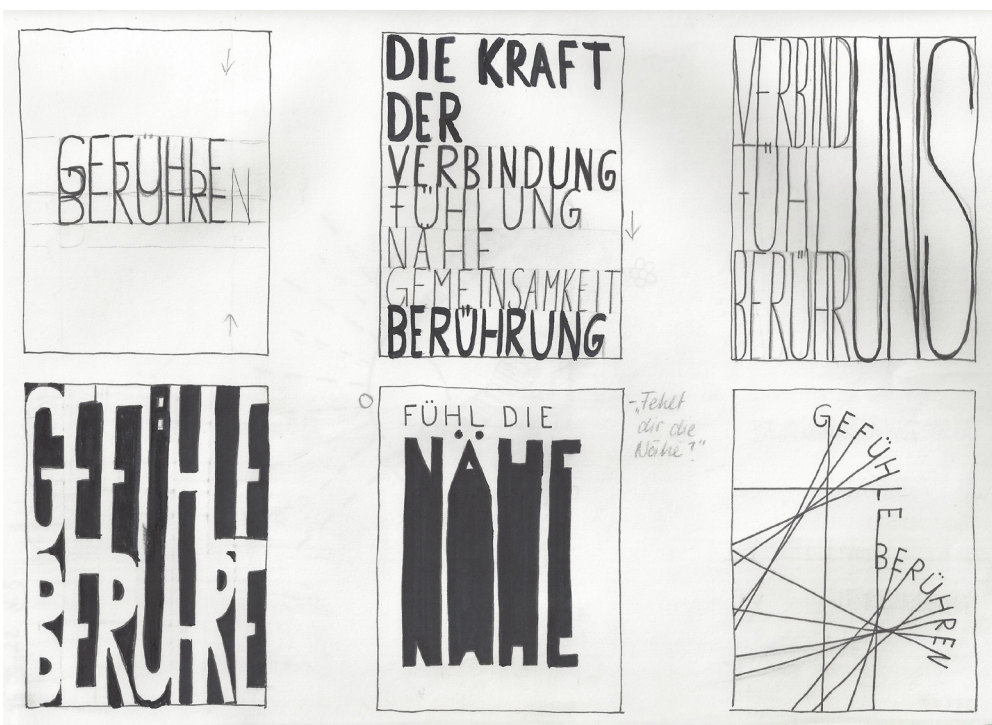 GEFÜHLE
BERÜHREN
DIE KRAFT
DER
VERBINDUNG
FÜHLUNG
NÄHE
GEMEINSAMKEIT
BERÜHRUNG
VERBIND
FÜHL
BERÜHR
UNS
GEFÜHLE
BERÜHRE
FÜHL DIE
NÄHE
- „Fehlt
dir die
Nähe?"
GEFÜHLE
BERÜHREN